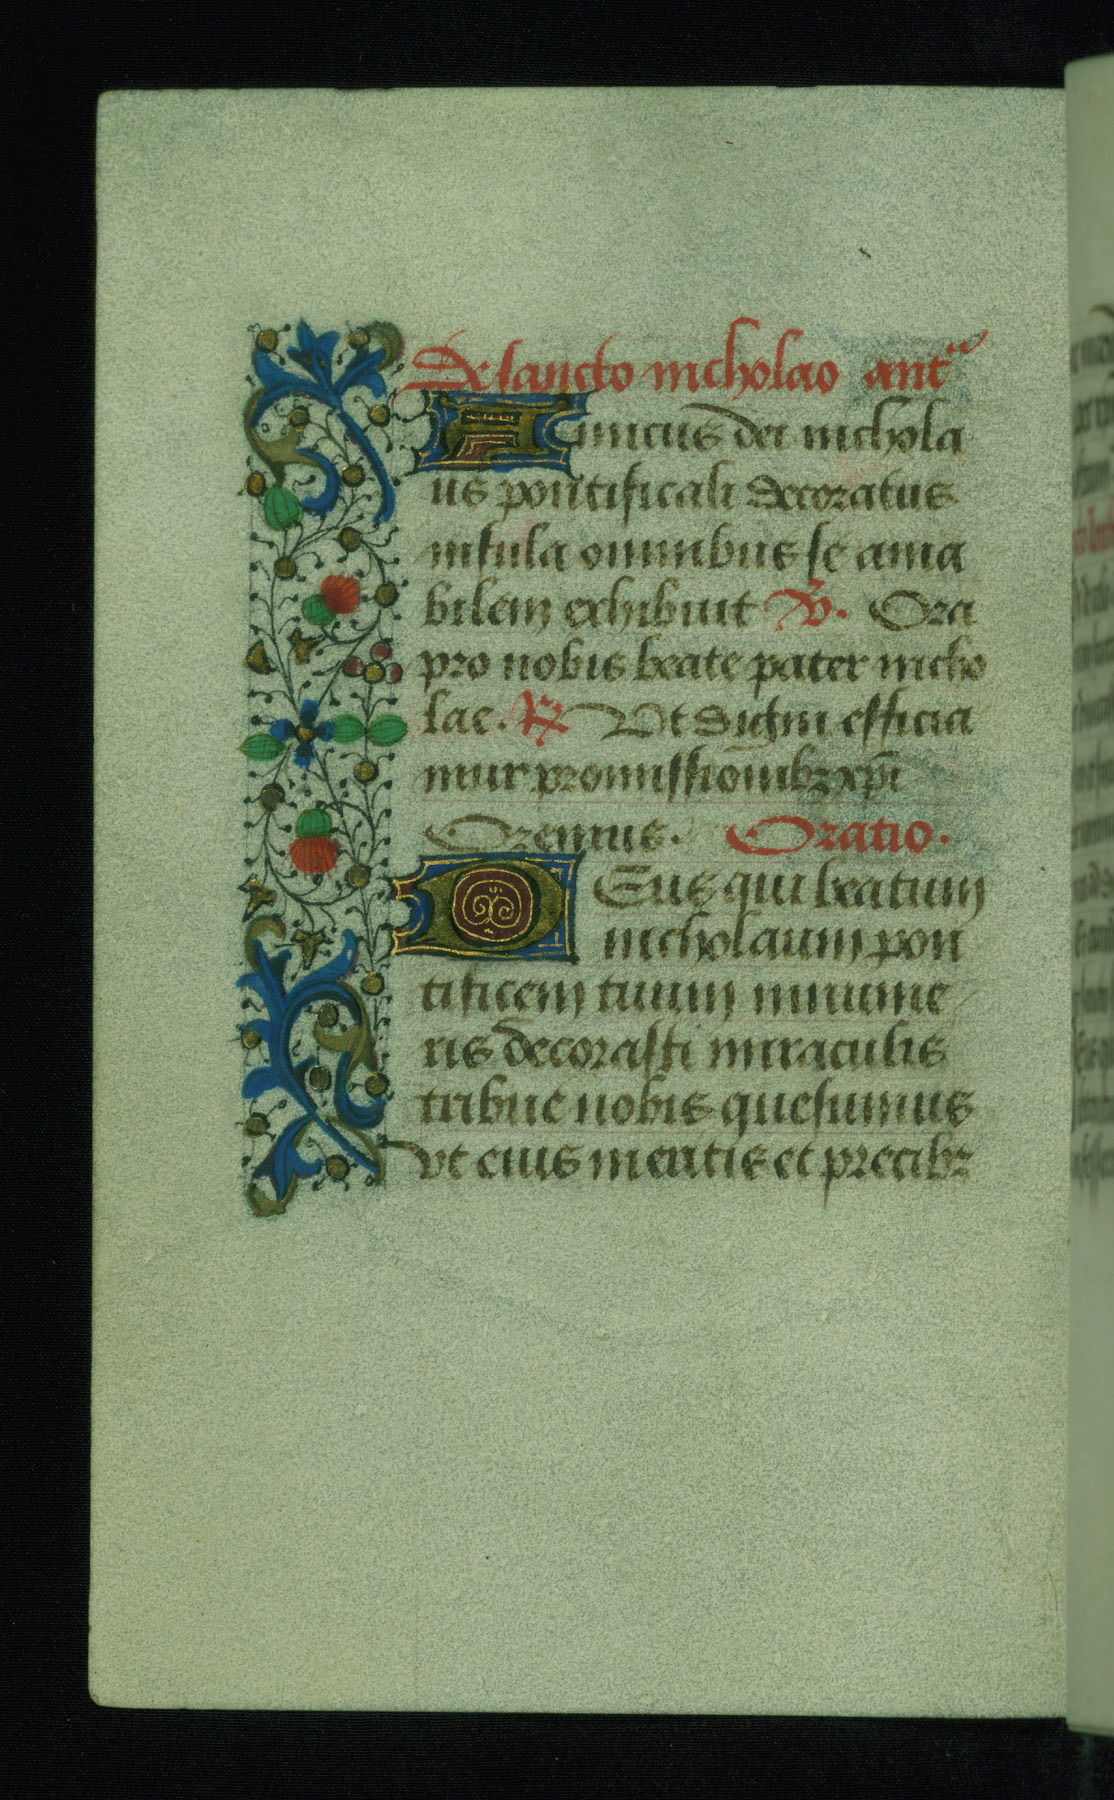 De sancto nicholao antᵃ
Amicus dei nichola
us pontificali decoratus
insula omnibus se ama
bilem exhibuit ℣. Ora
pro nobis beate pater nicho
lae. ℟ Ut digni efficia
mur promissionibꝫ xp̄i
Oremus. Oratio.
DEus qui beatum
nicholaum pon
tificem tuum innume
ris decorasti miraculis
tribue nobis quesumus
vt eius meritis et precibꝫ